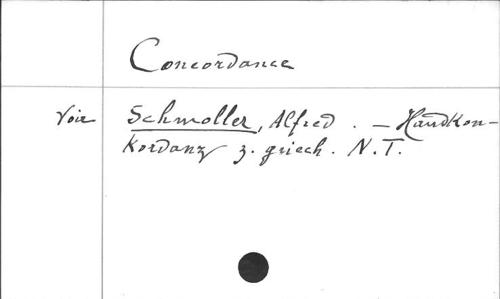 Concordance
Voir Schmoller, Alfred. — Handkon-
kordanz z. griech. N.T.